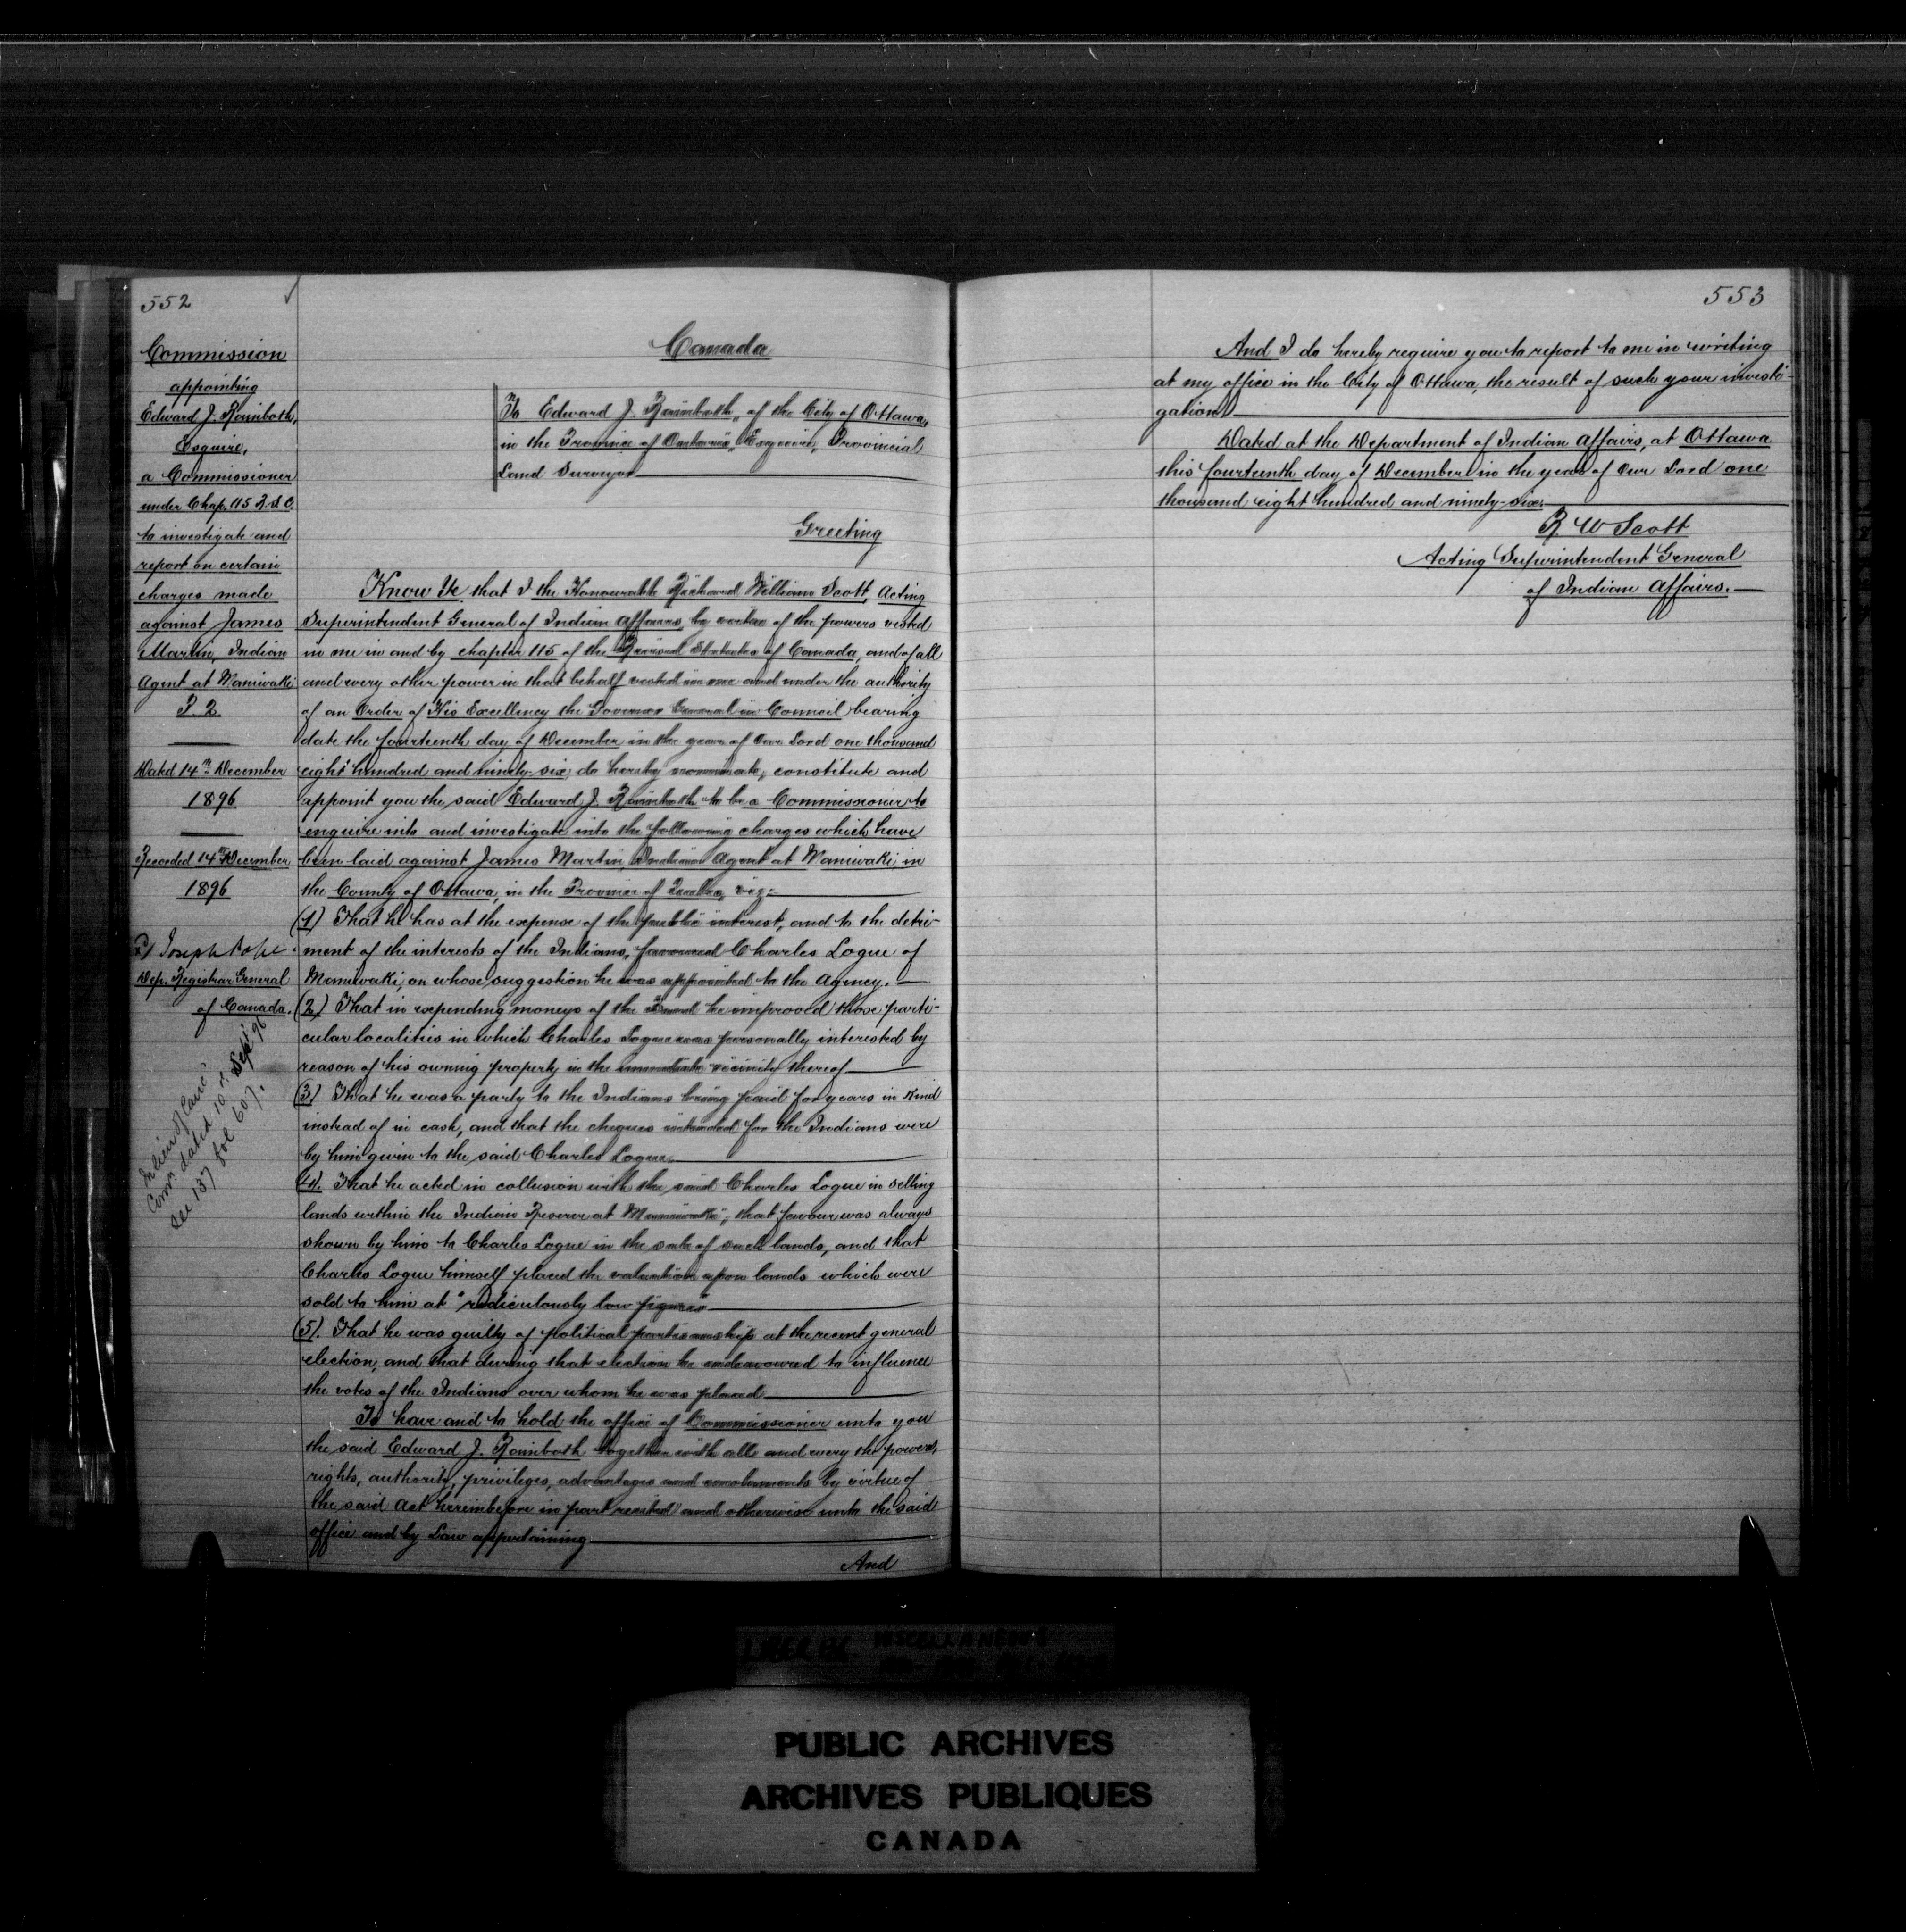 552
Commission
appointing
Edward J. Rainboth,
Esquire,
a Commissioner
under Chap. 115 R.S.C.
to investigate and
report on certain
charges made
against James
Martin, Indian
Agent at Maniwaki
P. Q.
Dated 14th December
1896
Recorded 14th December
1896
Joseph Pope
Dep. Registrar General
of Canada.
In lieu of canc'
Comn dated 10th Sept' 96
See 137 fol 607.
Canada
To Edward J. Rainboth, of the City of Ottawa,
in the Province of Ontario, Esquire, Provincial
Land Surveyor
Greeting
Know Ye that I the Honourable Richard William Scott, Acting
Superintendent General of Indian Affairs, by virtue of the powers vested
in me in and by chapter 115 of the Revised Statutes of Canada, and of all
and every other power in that behalf vested in me and under the authority
of an Order of His Excellency the Governor General in Council bearing
date the fourteenth day of December in the year of Our Lord one thousand
eight hundred and ninety-six, do hereby nominate, constitute and
appoint you the said Edward J. Rainboth to be a Commissioner to
enquire into and investigate into the following charges which have
been laid against James Martin, Indian Agent at Maniwaki, in
the County of Ottawa, in the Province of Quebec, viz:-
(1) That he has at the expense of the public interest, and to the detri-
ment of the interests of the Indians, favoured Charles Logue of
Maniwaki, on whose suggestion he was appointed to the Agency.
(2) That in expending moneys of the Band he improved those parti-
cular localities in which Charles Logue was personally interested by
reason of his owning property in the immediate vicinity thereof
(3) That he was a party to the Indians being paid for years in kind
instead of in cash, and that the cheques intended for the Indians were
by him given to the said Charles Logue.
(4). That he acted in collusion with the said Charles Logue in selling
lands within the Indian Reserve at Maniwaki, that favour was always
shown by him to Charles Logue in the sale of such lands, and that
Charles Logue himself placed the valuation upon lands which were
sold to him at "rediculously low figures"
(5). That he was guilty of political partisanship at the recent general
election, and that during that election he endeavoured to influence
the votes of the Indians over whom he was placed
To have and to hold the office of Commissioner unto you
the said Edward J. Rainboth together with all and every the powers,
rights, authority, privileges, advantages and emoluments by virtue of
the said Act hereinbefore in part recited and otherwise unto the said
office and by Law appertaining
And
553
And I do hereby require you to report to me in writing
at my office in the City of Ottawa, the result of such your investi-
gation
Dated at the Department of Indian Affairs, at Ottawa
this fourteenth day of December in the year of Our Lord one
thousand eight hundred and ninety-six.
R. W Scott
Acting Superintendent General
of Indian Affairs.
MISCELLANEOUS
PUBLIC ARCHIVES
ARCHIVES PUBLIQUES
CANADA